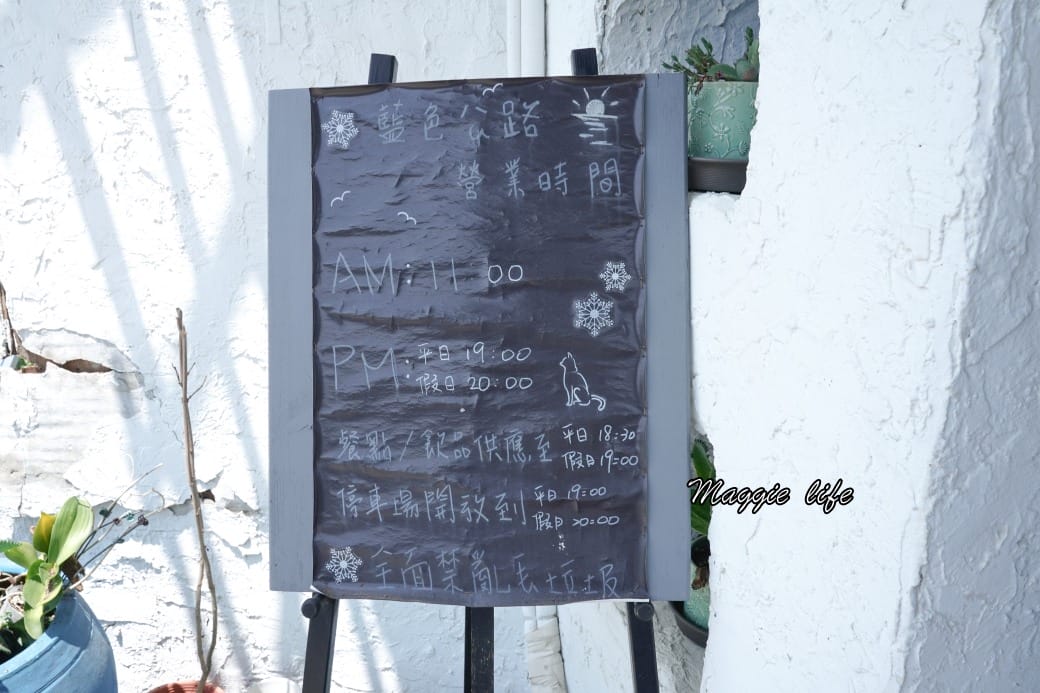 藍色公路
營業時間
AM:11 00
PM:平日 19:00
假日 20:00
餐點/飲品供應至 平日 18:30
假日 19:00
停車場開放到 平日 19:00
假日 20:00
全面禁亂丟垃圾
Maggie life